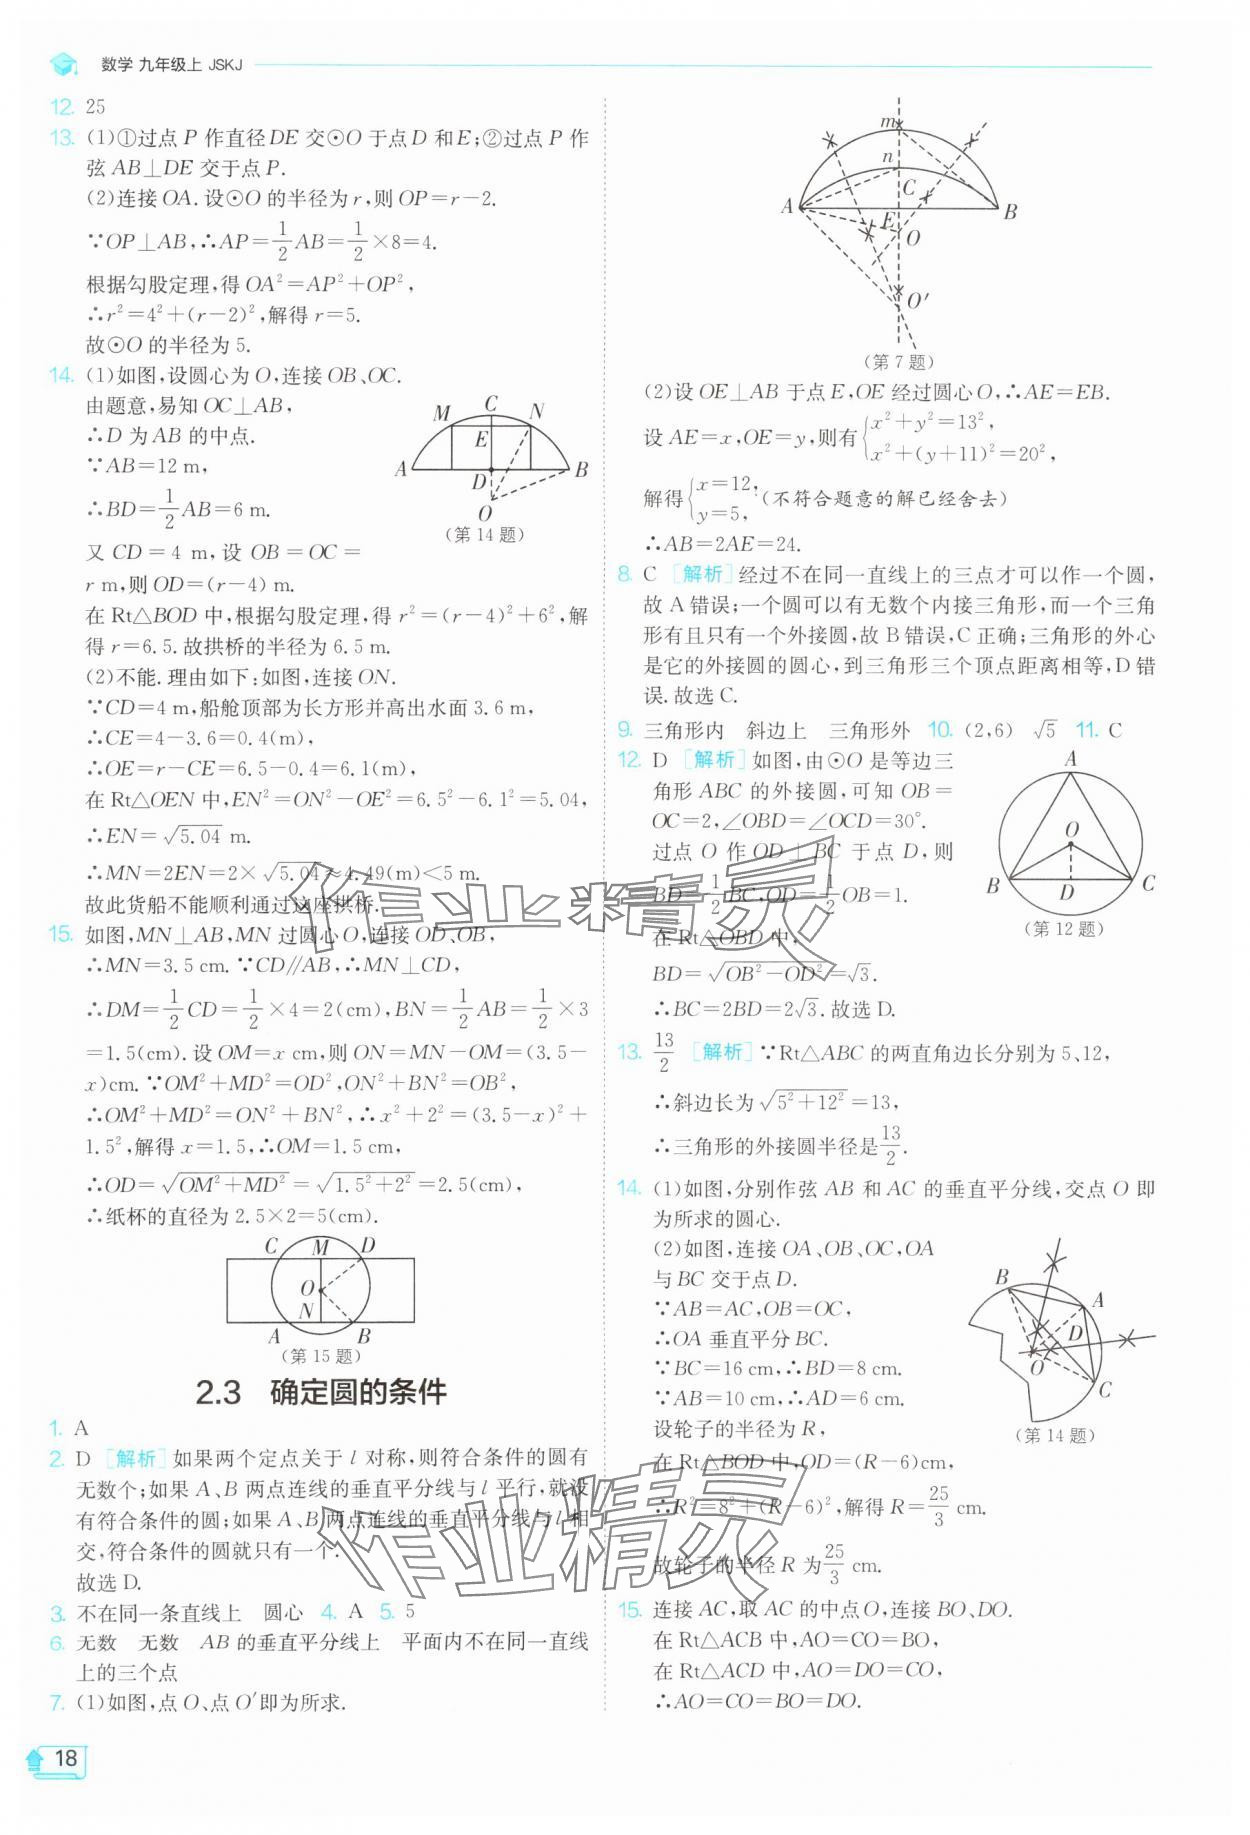 数学 九年级上 JSKJ
12. 25
13. (1)①过点 P 作直径DE 交⊙O 于点 D 和E;②过点 P 作
弦 AB⊥DE 交于点 P.
(2)连接 OA. 设⊙O 的半径为 r,则 OP=r-2.
∵OP⊥AB,∴AP=1/2AB=1/2×8=4.
根据勾股定理,得 OA²=AP²+OP²,
∴r²=4²+(r-2)²,解得 r=5.
故⊙O 的半径为 5.
14. (1)如图,设圆心为 O,连接 OB、OC.
由题意,易知 OC⊥AB,
∴D 为 AB 的中点.
∵AB=12 m,
∴BD=1/2AB=6 m.
又 CD = 4 m, 设 OB = OC =
r m,则 OD=(r-4) m.
M C N
E
A D B
O
(第 14 题)
在 Rt△BOD 中,根据勾股定理,得 r²=(r-4)²+6²,解
得 r=6.5. 故拱桥的半径为 6.5 m.
(2)不能. 理由如下:如图,连接 ON.
∵CD=4 m,船舱顶部为长方形并高出水面 3.6 m,
∴CE=4-3.6=0.4(m),
∴OE=r-CE=6.5-0.4=6.1(m),
在 Rt△OEN 中,EN²=ON²-OE²=6.5²-6.1²=5.04,
∴EN=√5.04 m.
∴MN=2EN=2×√5.04≈4.49(m)<5 m.
故此货船不能顺利通过这座拱桥.
15. 如图,MN⊥AB,MN 过圆心 O,连接 OD、OB,
∴MN=3.5 cm. ∵CD∥AB,∴MN⊥CD,
∴DM=1/2CD=1/2×4=2(cm),BN=1/2AB=1/2×3
=1.5(cm). 设 OM=x cm,则 ON=MN-OM=(3.5-
x)cm. ∵OM²+MD²=OD²,ON²+BN²=OB²,
∴OM²+MD²=ON²+BN²,∴x²+2²=(3.5-x)²+
1.5²,解得 x=1.5,∴OM=1.5 cm,
∴OD=√(OM²+MD²)=√(1.5²+2²)=2.5(cm),
∴纸杯的直径为 2.5×2=5(cm).
C M D
O
N
A B
(第 15 题)
2.3 确定圆的条件
1. A
2. D [解析]如果两个定点关于 l 对称,则符合条件的圆有
无数个;如果 A、B 两点连线的垂直平分线与 l 平行,就没
有符合条件的圆;如果 A、B 两点连线的垂直平分线与 l 相
交,符合条件的圆就只有一个.
故选 D.
3. 不在同一条直线上 圆心 4. A 5. 5
6. 无数 无数 AB 的垂直平分线上 平面内不在同一直线
上的三个点
7. (1)如图,点 O、点 O′即为所求.
m
n
C
A E B
O
O′
(第 7 题)
(2)设 OE⊥AB 于点 E,OE 经过圆心 O,∴AE=EB.
设 AE=x,OE=y,则有{x²+y²=13²,
x²+(y+11)²=20²,
解得{x=12,
y=5,(不符合题意的解已经舍去)
∴AB=2AE=24.
8. C [解析]经过不在同一直线上的三点才可以作一个圆,
故 A 错误;一个圆可以有无数个内接三角形,而一个三角
形有且只有一个外接圆,故 B 错误,C 正确;三角形的外心
是它的外接圆的圆心,到三角形三个顶点距离相等,D 错
误. 故选 C.
9. 三角形内 斜边上 三角形外 10. (2,6) √5 11. C
12. D [解析]如图,由⊙O 是等边三
角形 ABC 的外接圆,可知 OB=
OC=2,∠OBD=∠OCD=30°.
过点 O 作 OD⊥BC 于点 D,则
BD=1/2BC,OD=1/2OB=1.
在 Rt△OBD 中,
BD=√(OB²-OD²)=√3.
∴BC=2BD=2√3. 故选 D.
A
O
B D C
(第 12 题)
13. 13/2 [解析]∵Rt△ABC 的两直角边长分别为 5、12,
∴斜边长为√(5²+12²)=13,
∴三角形的外接圆半径是13/2.
14. (1)如图,分别作弦 AB 和 AC 的垂直平分线,交点 O 即
为所求的圆心.
(2)如图,连接 OA、OB、OC,OA
与 BC 交于点 D.
∵AB=AC,OB=OC,
∴OA 垂直平分 BC.
∵BC=16 cm,∴BD=8 cm.
∵AB=10 cm,∴AD=6 cm.
设轮子的半径为 R,
在 Rt△BOD 中,OD=(R-6)cm,
∴R²=8²+(R-6)²,解得 R=25/3 cm.
故轮子的半径 R 为25/3 cm.
B
A
D
O
C
(第 14 题)
15. 连接 AC,取 AC 的中点 O,连接 BO、DO.
在 Rt△ACB 中,AO=CO=BO,
在 Rt△ACD 中,AO=DO=CO,
∴AO=CO=BO=DO.
作业精灵
作业精灵
18